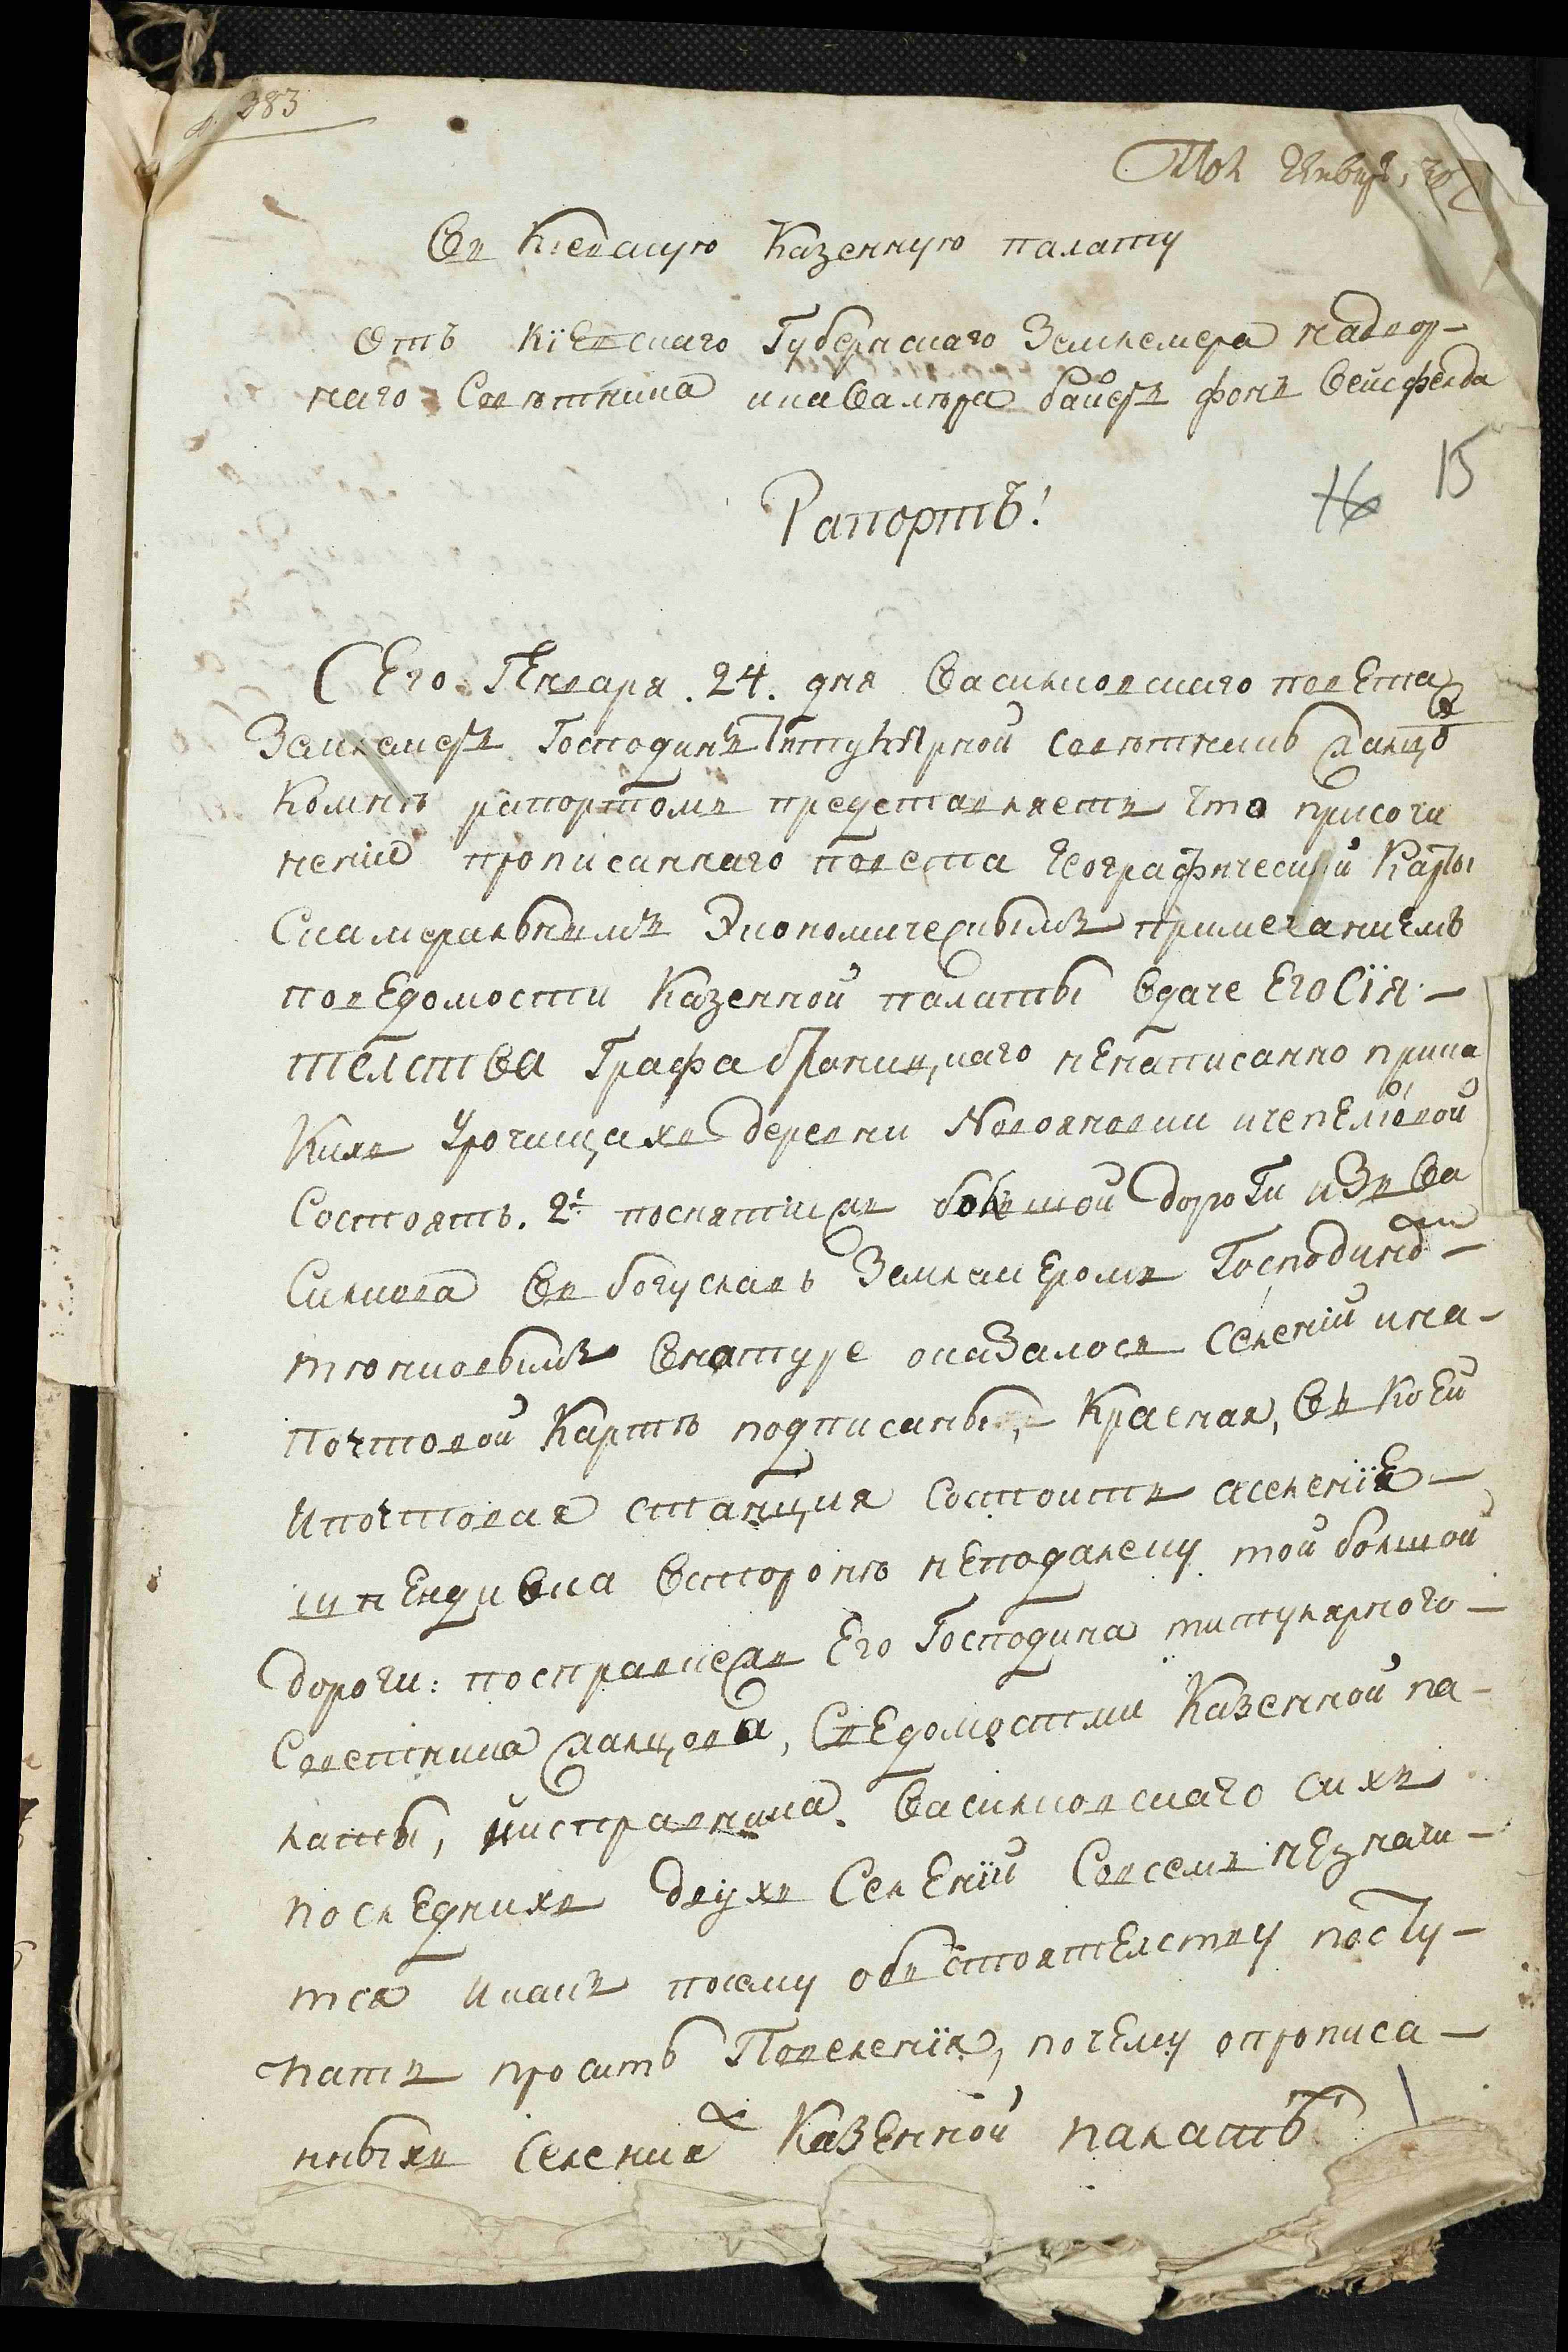 383
Въ Кіевскую Казенную палату
Отъ Кіевскаго Губернскаго Землемера надвор-
наго Советника икавалера байеръ фонъ Вейсфелда
16 15
Рапортъ!
Сего Генваря .24. дня Васильковскаго повета
Землемеръ Господинъ Титулярной советникъ
Комнѣ рапортомъ представляетъ что присочи
неніи прописаннаго повета Географической Карты
Скамеральнымъ Экономическымъ примечаниемъ
поведомости Казенной палаты вдаче Его Сія-
телства Графа браницкаго ненаписанно прика
Кихъ Урочищахъ деревни Новояновки
Состоятъ. 2е поснятии болшой дороги изъ Ва
Силкова въ богуславъ Землемеромъ Господино
внатуре оказалось Селеніи ина-
Почтовой Картѣ подписаны, Красная, въ коей
Ипочтовая станция Состоитъ аселеніе
всторонѣ неподалеку той болшой
дороги: посправке Его Господина титулярного
Советника, Сведомостми Казенной па-
латы, иисправника. Васильковскаго сихъ
последнихъ двухъ Селеній Совсемъ незначи-
тся икакъ посему обстоятелству посту-
пать проситъ Повеленія, почему опрописа-
нныхъ селения Казенной палатѣ